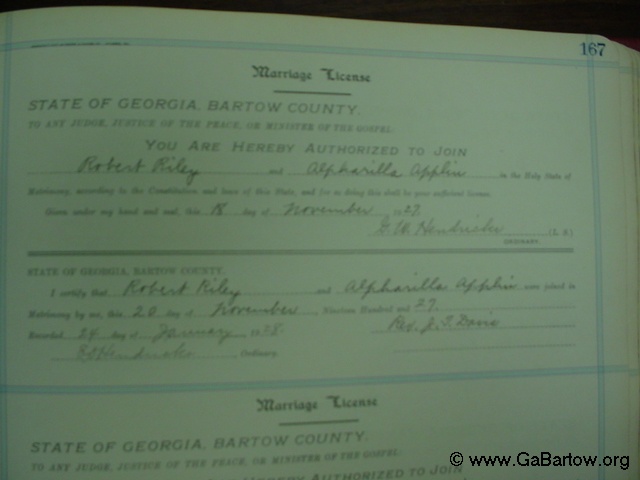 167
Marriage License
STATE OF GEORGIA, BARTOW COUNTY.
TO ANY JUDGE, JUSTICE OF THE PEACE, OR MINISTER OF THE GOSPEL:
YOU ARE HEREBY AUTHORIZED TO JOIN
Robert Riley and Alpharilla Applin in the Holy State of
Matrimony, according to the Constitution and laws of this State, and for so doing this shall be your sufficient license.
Given under my hand and seal, this 18 day of November 1927
G. W. Hendricks (L. S.)
ORDINARY.
STATE OF GEORGIA, BARTOW COUNTY.
I certify that Robert Riley and Alpharilla Applin were joined in
Matrimony by me, this 20 day of November, Nineteen Hundred and 27.
Recorded 24 day of January 1928 Rev. J. T. Davis
Hendricks, Ordinary.
Marriage License
STATE OF GEORGIA, BARTOW COUNTY.
TO ANY JUDGE, JUSTICE OF THE PEACE, OR MINISTER OF THE GOSPEL:
HEREBY AUTHORIZED TO JOIN
© www.GaBartow.org